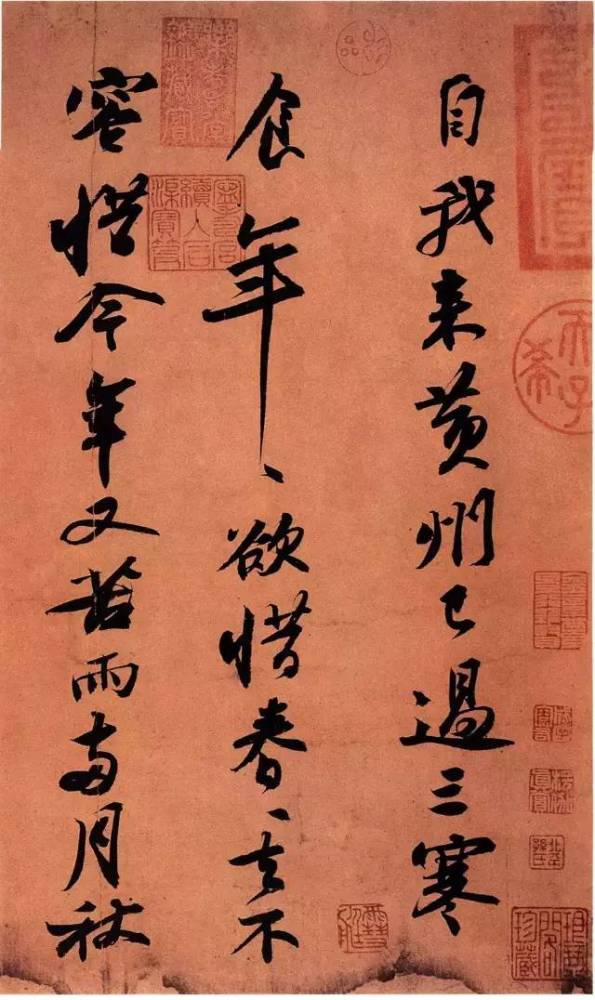 自我来黄州已過三寒
食年、欲惜春、去不
容惜今年又苦雨兩月秋
天子
希
珍藏